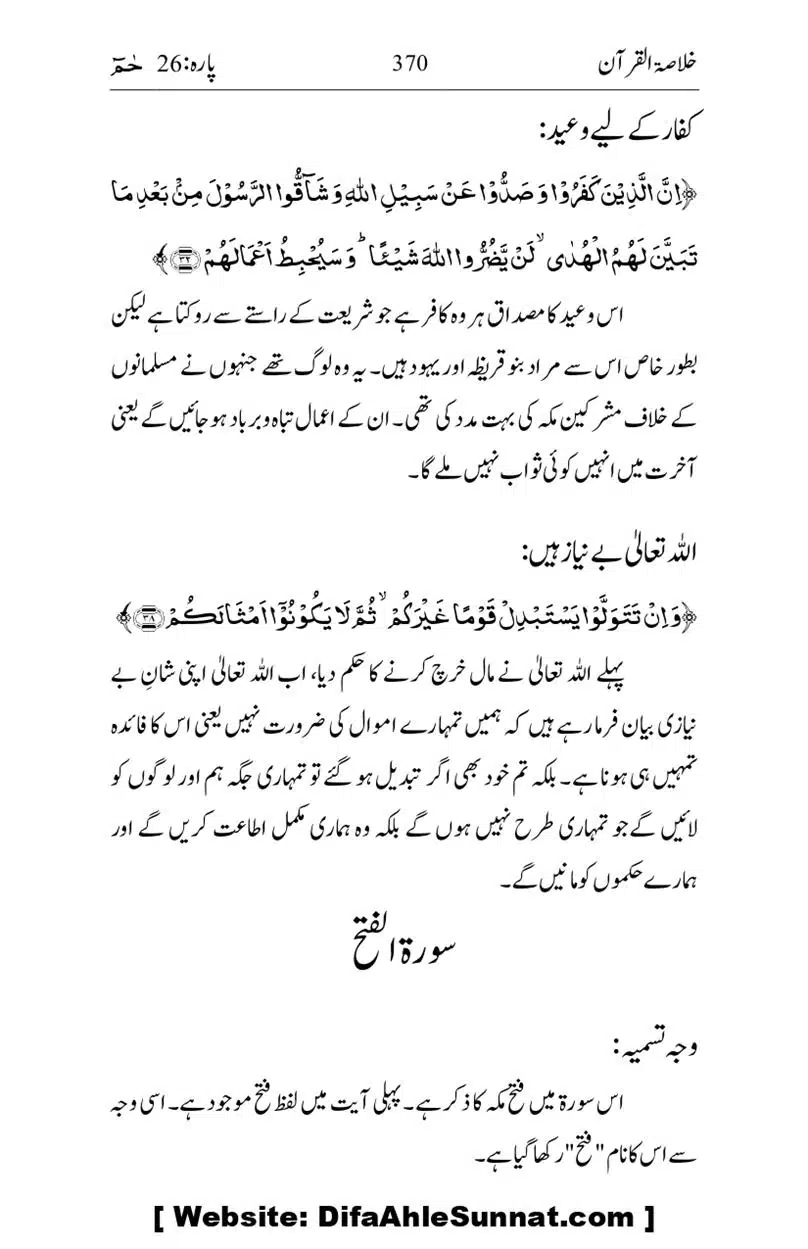 خلاصۃ القرآن 370 پارہ:26 حٰمٓ
کفار کے لیے وعید:
﴿اِنَّ الَّذِیْنَ کَفَرُوْا وَ صَدُّوْا عَنْ سَبِیْلِ اللہِ وَ شَآقُّوا الرَّسُوْلَ مِنْۢ بَعْدِ مَا
تَبَیَّنَ لَهُمُ الْهُدٰی ۙ لَنْ یَّضُرُّوا اللہَ شَیْئًا ؕ وَ سَیُحْبِطُ اَعْمَالَهُمْ ﴿۳۲﴾﴾
اس وعید کا مصداق ہر وہ کافر ہے جو شریعت کے راستے سے روکتا ہے لیکن
بطور خاص اس سے مراد بنو قریظہ اور یہود ہیں۔ یہ وہ لوگ تھے جنہوں نے مسلمانوں
کے خلاف مشرکین مکہ کی بہت مدد کی تھی۔ ان کے اعمال تباہ و برباد ہو جائیں گے یعنی
آخرت میں انہیں کوئی ثواب نہیں ملے گا۔
اللہ تعالیٰ بے نیاز ہیں:
﴿وَ اِنْ تَتَوَلَّوْا یَسْتَبْدِلْ قَوْمًا غَیْرَکُمْ ۙ ثُمَّ لَا یَکُوْنُوْۤا اَمْثَالَکُمْ ﴿۳۸﴾﴾
پہلے اللہ تعالیٰ نے مال خرچ کرنے کا حکم دیا، اب اللہ تعالیٰ اپنی شانِ بے
نیازی بیان فرما رہے ہیں کہ ہمیں تمہارے اموال کی ضرورت نہیں یعنی اس کا فائدہ
تمہیں ہی ہونا ہے۔ بلکہ تم خود بھی اگر تبدیل ہو گئے تو تمہاری جگہ ہم اور لوگوں کو
لائیں گے جو تمہاری طرح نہیں ہوں گے بلکہ وہ ہماری مکمل اطاعت کریں گے اور
ہمارے حکموں کو مانیں گے۔
سورۃ الفتح
وجہ تسمیہ:
اس سورۃ میں فتح مکہ کا ذکر ہے۔ پہلی آیت میں لفظ فتح موجود ہے۔ اسی وجہ
سے اس کا نام "فتح" رکھا گیا ہے۔
[ Website: DifaAhleSunnat.com ]